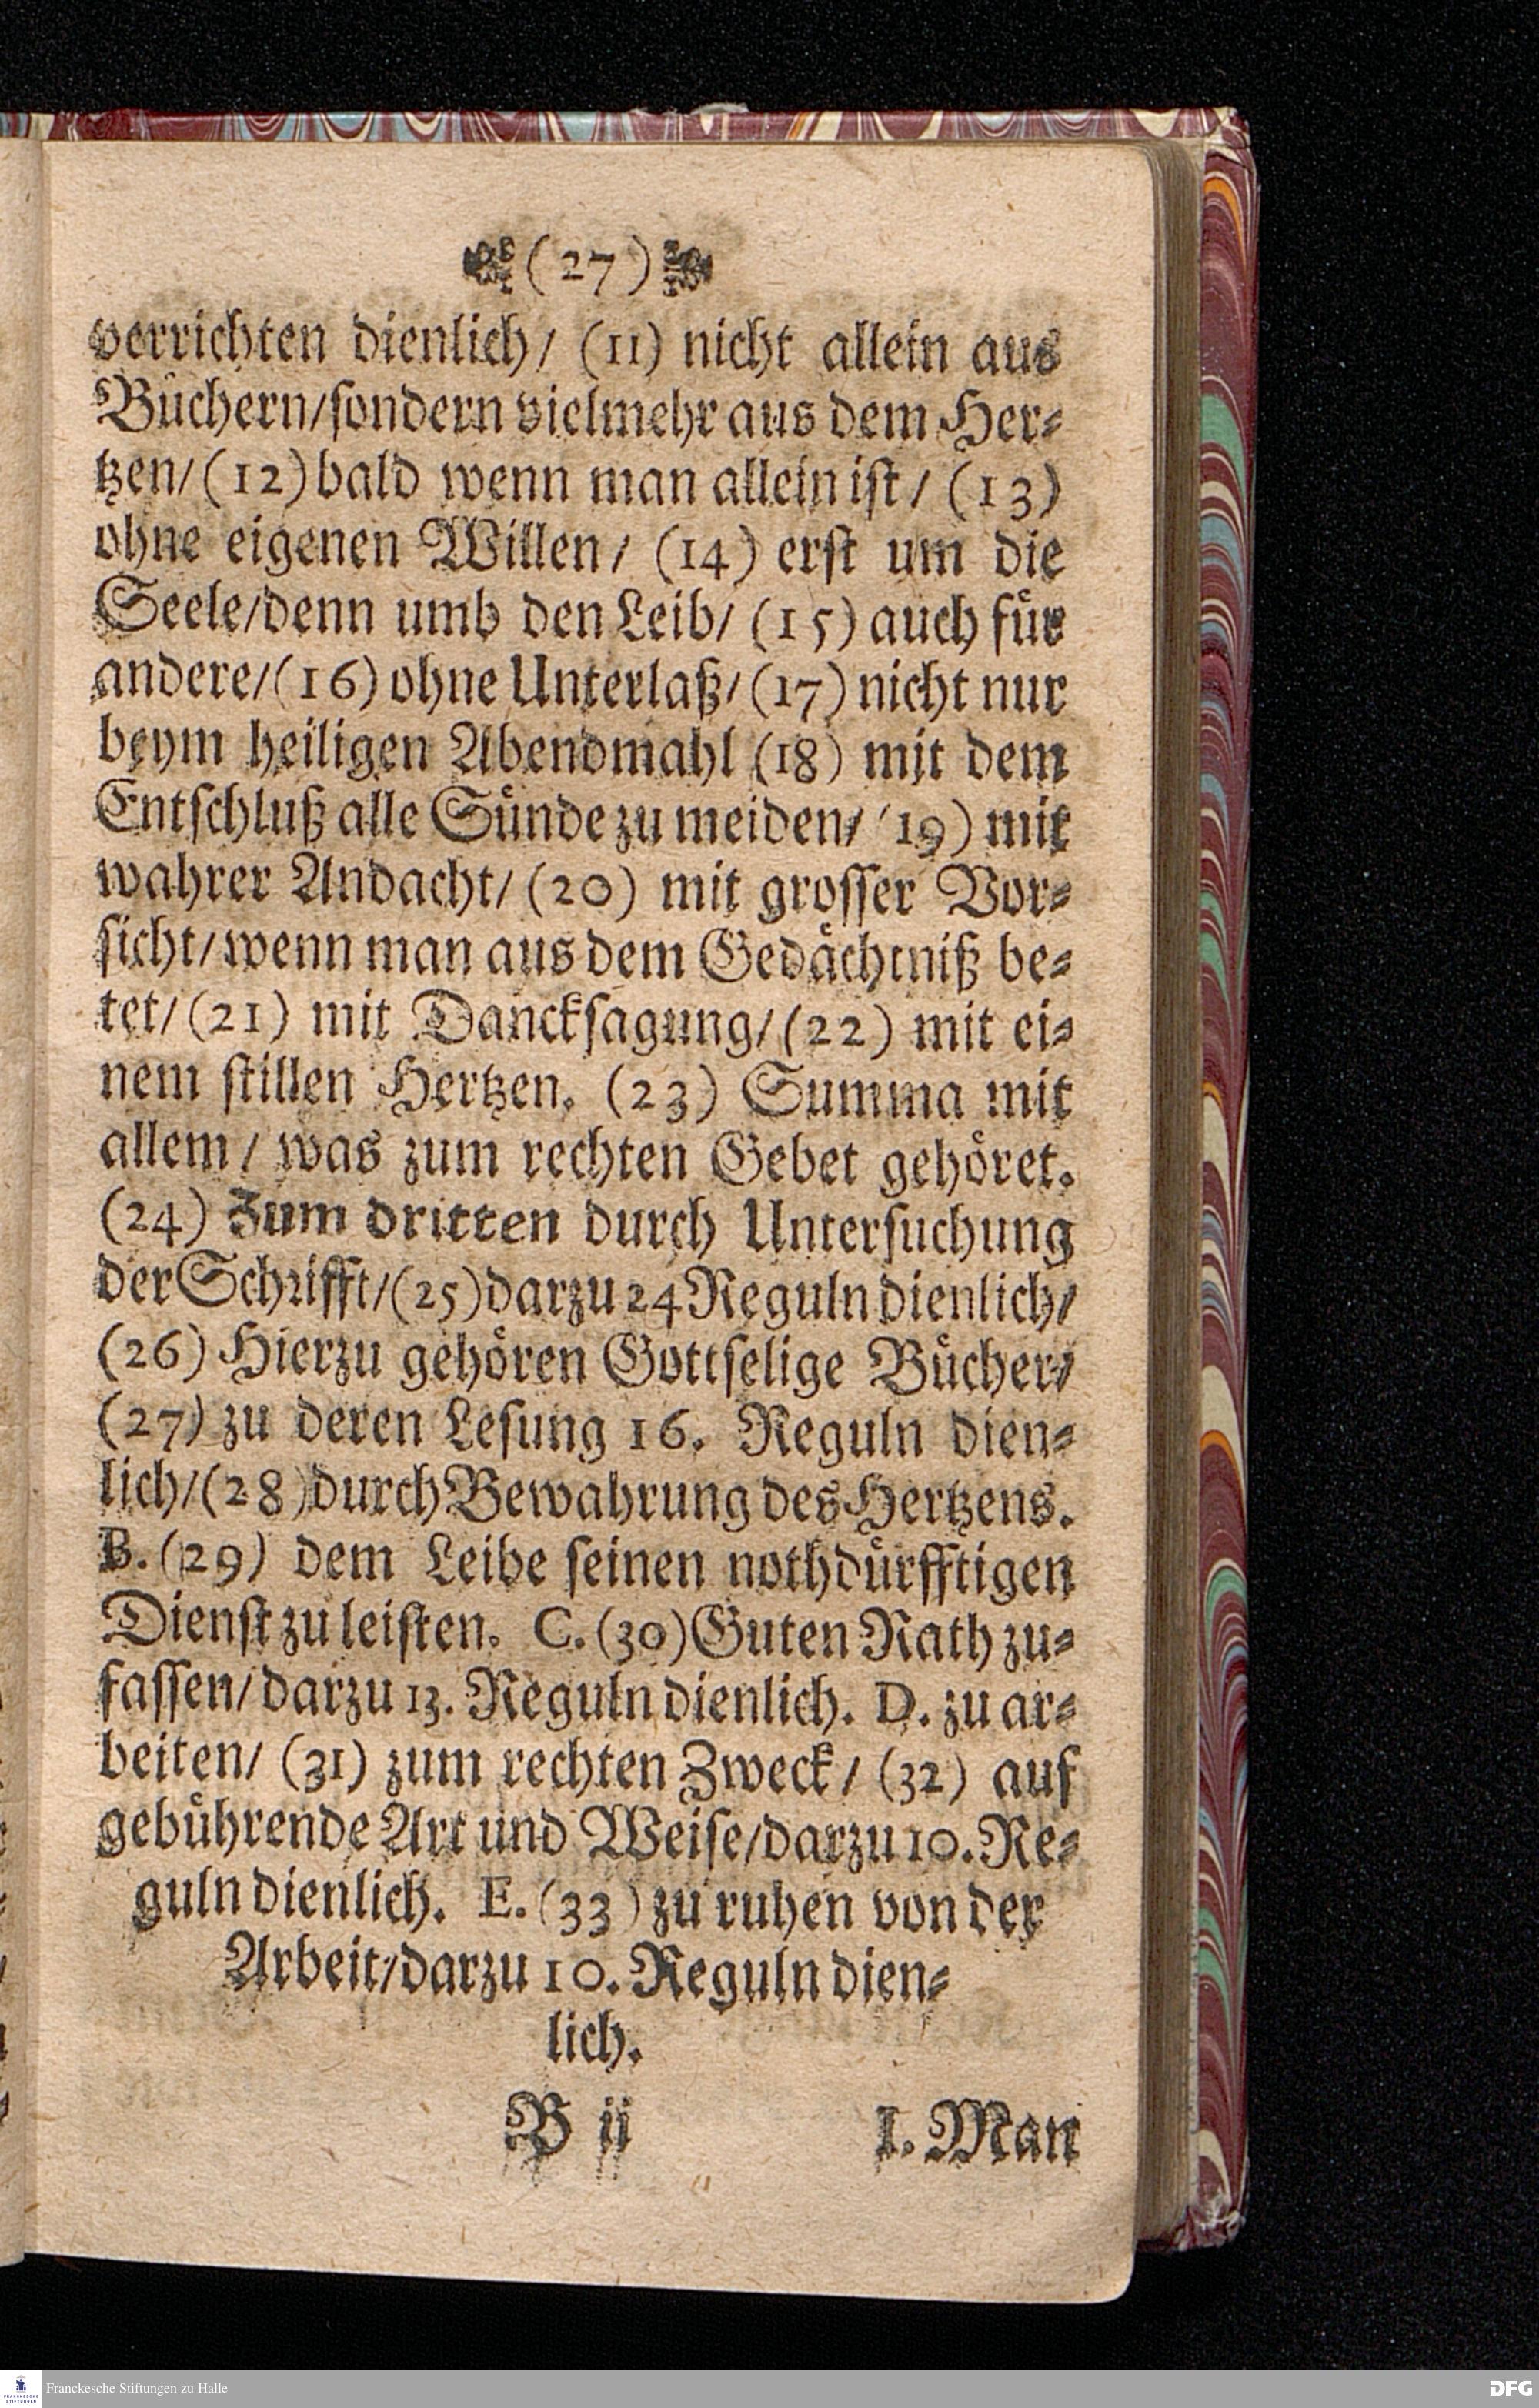 (27)
verrichten dienlich/ (11) nicht allein aus
Büchern/sondern vielmehr aus dem Her-
tzen/(12)bald wenn man allein ist/ (13)
ohne eigenen Willen/ (14) erst um die
Seele/denn umb den Leib/ (15) auch für
andere/(16) ohne Unterlaß/(17) nicht nur
beym heiligen Abendmahl (18) mit dem
Entschluß alle Sünde zu meiden/ (19) mit
wahrer Andacht/ (20) mit grosser Vor-
sicht/wenn man aus dem Gedächtniß be-
tet/(21) mit Dancksagung/(22) mit ei-
nem stillen Hertzen. (23) Summa mit
allem/ was zum rechten Gebet gehöret.
(24) Zum dritten durch Untersuchung
der Schrifft/(25)darzu 24 Reguln dienlich/
(26) Hierzu gehören Gottselige Bücher/
(27) zu deren Lesung 16. Reguln dien-
lich/(28)durch Bewahrung des Hertzens.
B. (29) dem Leibe seinen nothdürfftigen
Dienst zu leisten. C. (30)Guten Rath zu-
fassen/darzu 13. Reguln dienlich. D. zu ar-
beiten/ (31) zum rechten Zweck/ (32) auf
gebührende Art und Weise/darzu 10. Re-
guln dienlich. E. (33) zu ruhen von der
Arbeit/darzu 10. Reguln dien-
lich.
B ij
I. Man
Franckesche Stiftungen zu Halle
DFG